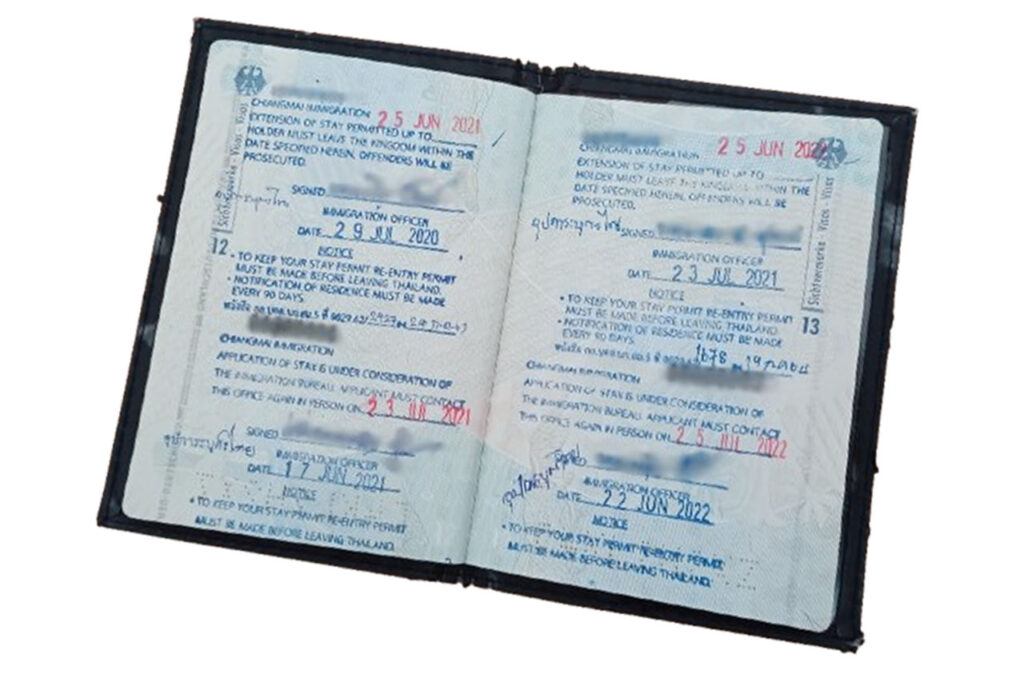 CHIANGMAI IMMIGRATION 25 JUN 2021
EXTENSION OF STAY PERMITTED UP TO
HOLDER MUST LEAVE THE KINGDOM WITHIN THE
DATE SPECIFIED HEREIN, OFFENDERS WILL BE
PROSECUTED.
SIGNED
IMMIGRATION OFFICER
DATE 29 JUL 2020
NOTICE
• TO KEEP YOUR STAY PERMIT RE-ENTRY PERMIT
MUST BE MADE BEFORE LEAVING THAILAND.
• NOTIFICATION OF RESIDENCE MUST BE MADE
EVERY 90 DAYS.
CHIANGMAI IMMIGRATION
APPLICATION OF STAY IS UNDER CONSIDERATION OF
THE IMMIGRATION BUREAU. APPLICANT MUST CONTACT
THIS OFFICE AGAIN IN PERSON ON 23 JUL 2021
SIGNED
IMMIGRATION OFFICER
DATE 17 JUN 2021
NOTICE
• TO KEEP YOUR STAY PERMIT RE-ENTRY PERMIT
MUST BE MADE BEFORE LEAVING THAILAND.
Sichtvermerke - Visas - Visas
12
CHIANGMAI IMMIGRATION 25 JUN 2022
EXTENSION OF STAY PERMITTED UP TO
HOLDER MUST LEAVE THE KINGDOM WITHIN THE
DATE SPECIFIED HEREIN, OFFENDERS WILL BE
PROSECUTED.
SIGNED
IMMIGRATION OFFICER
DATE 23 JUL 2021
NOTICE
• TO KEEP YOUR STAY PERMIT RE-ENTRY PERMIT
MUST BE MADE BEFORE LEAVING THAILAND.
• NOTIFICATION OF RESIDENCE MUST BE MADE
EVERY 90 DAYS.
1678
CHIANGMAI IMMIGRATION
APPLICATION OF STAY IS UNDER CONSIDERATION OF
THE IMMIGRATION BUREAU. APPLICANT MUST CONTACT
THIS OFFICE AGAIN IN PERSON ON 25 JUL 2022
SIGNED
IMMIGRATION OFFICER
DATE 22 JUN 2022
NOTICE
• TO KEEP YOUR STAY PERMIT RE-ENTRY PERMIT
MUST BE MADE BEFORE LEAVING THAILAND.
Sichtvermerke - Visas - Visas
13